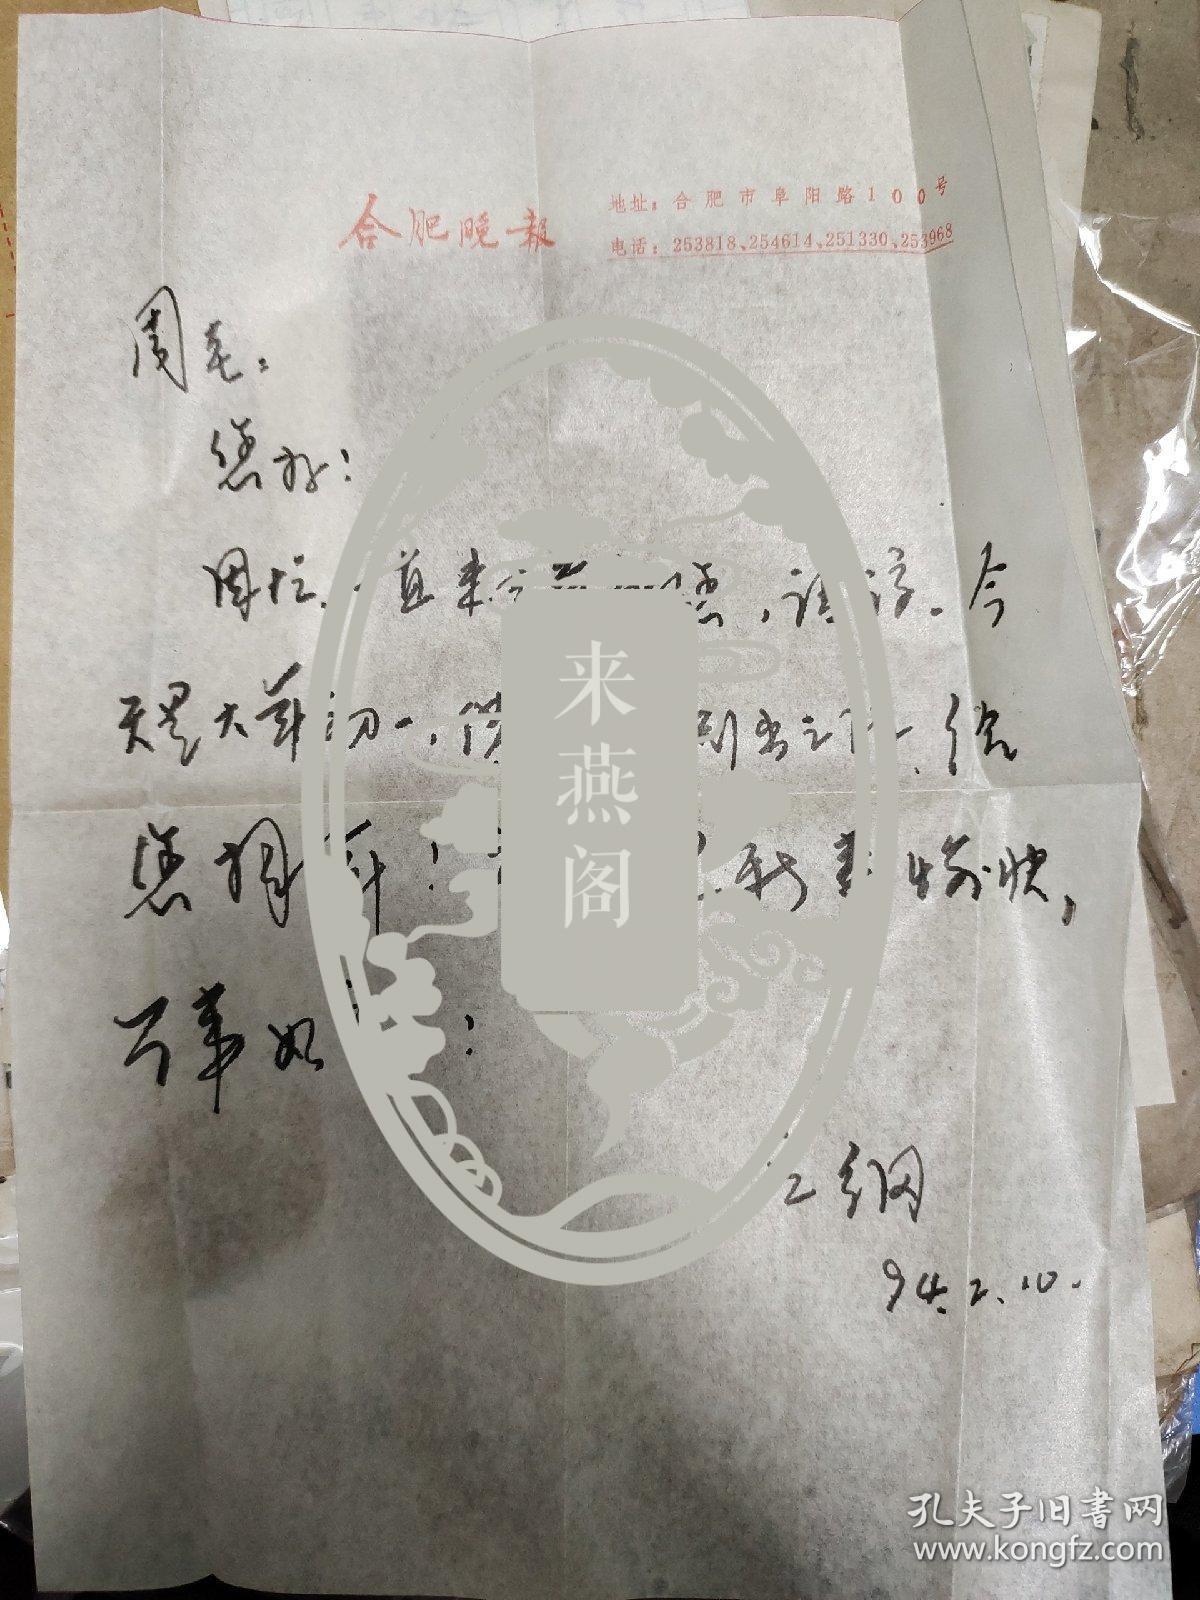 合肥晚報
地址：合肥市阜阳路100号
电话：253818、254614、251330、253968
周老：
您好！
因忙，一直未 您，请谅。今
天是大年初一，借 之际，给
您拜年！ 新春愉快，
万事如 ！
江 纲
94.2.10.
来燕阁
孔夫子旧书网
www.kongfz.com